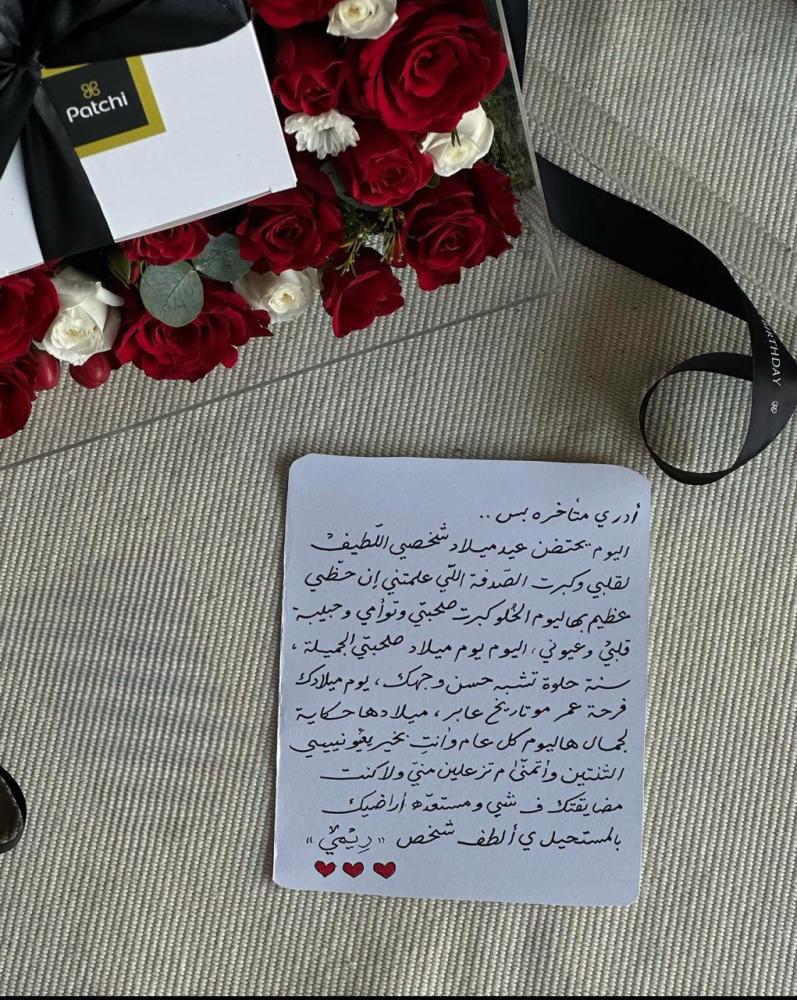 Patchi
BIRTHDAY
أدري متأخره بس ..
اليوم يحتضن عيد ميلاد شخصي اللّطيف
لقلبي وكبرت الصّدفة اللّي علمتني إن حظّي
عظيم بهاليوم الحُلو كبرت صاحبتي وتوأمي وحبيبة
قلبي وعيوني، اليوم يوم ميلاد صاحبتي الجميلة ،
سنة حلوة تشبه حسن وجهك ، يوم ميلادك
فرحة عمر مو تاريخ عابر ، ميلادها حكاية
لجمال هاليوم كل عام وانتِ بخير يعيّونيييي
الثنتين وأتمنّىٰ م تزعلين منيّ ولا كنت
مضايقتك ف شيي ومستعدّه أراضيك
بالمستحيل ي ألطف شخص "ريْميْ"